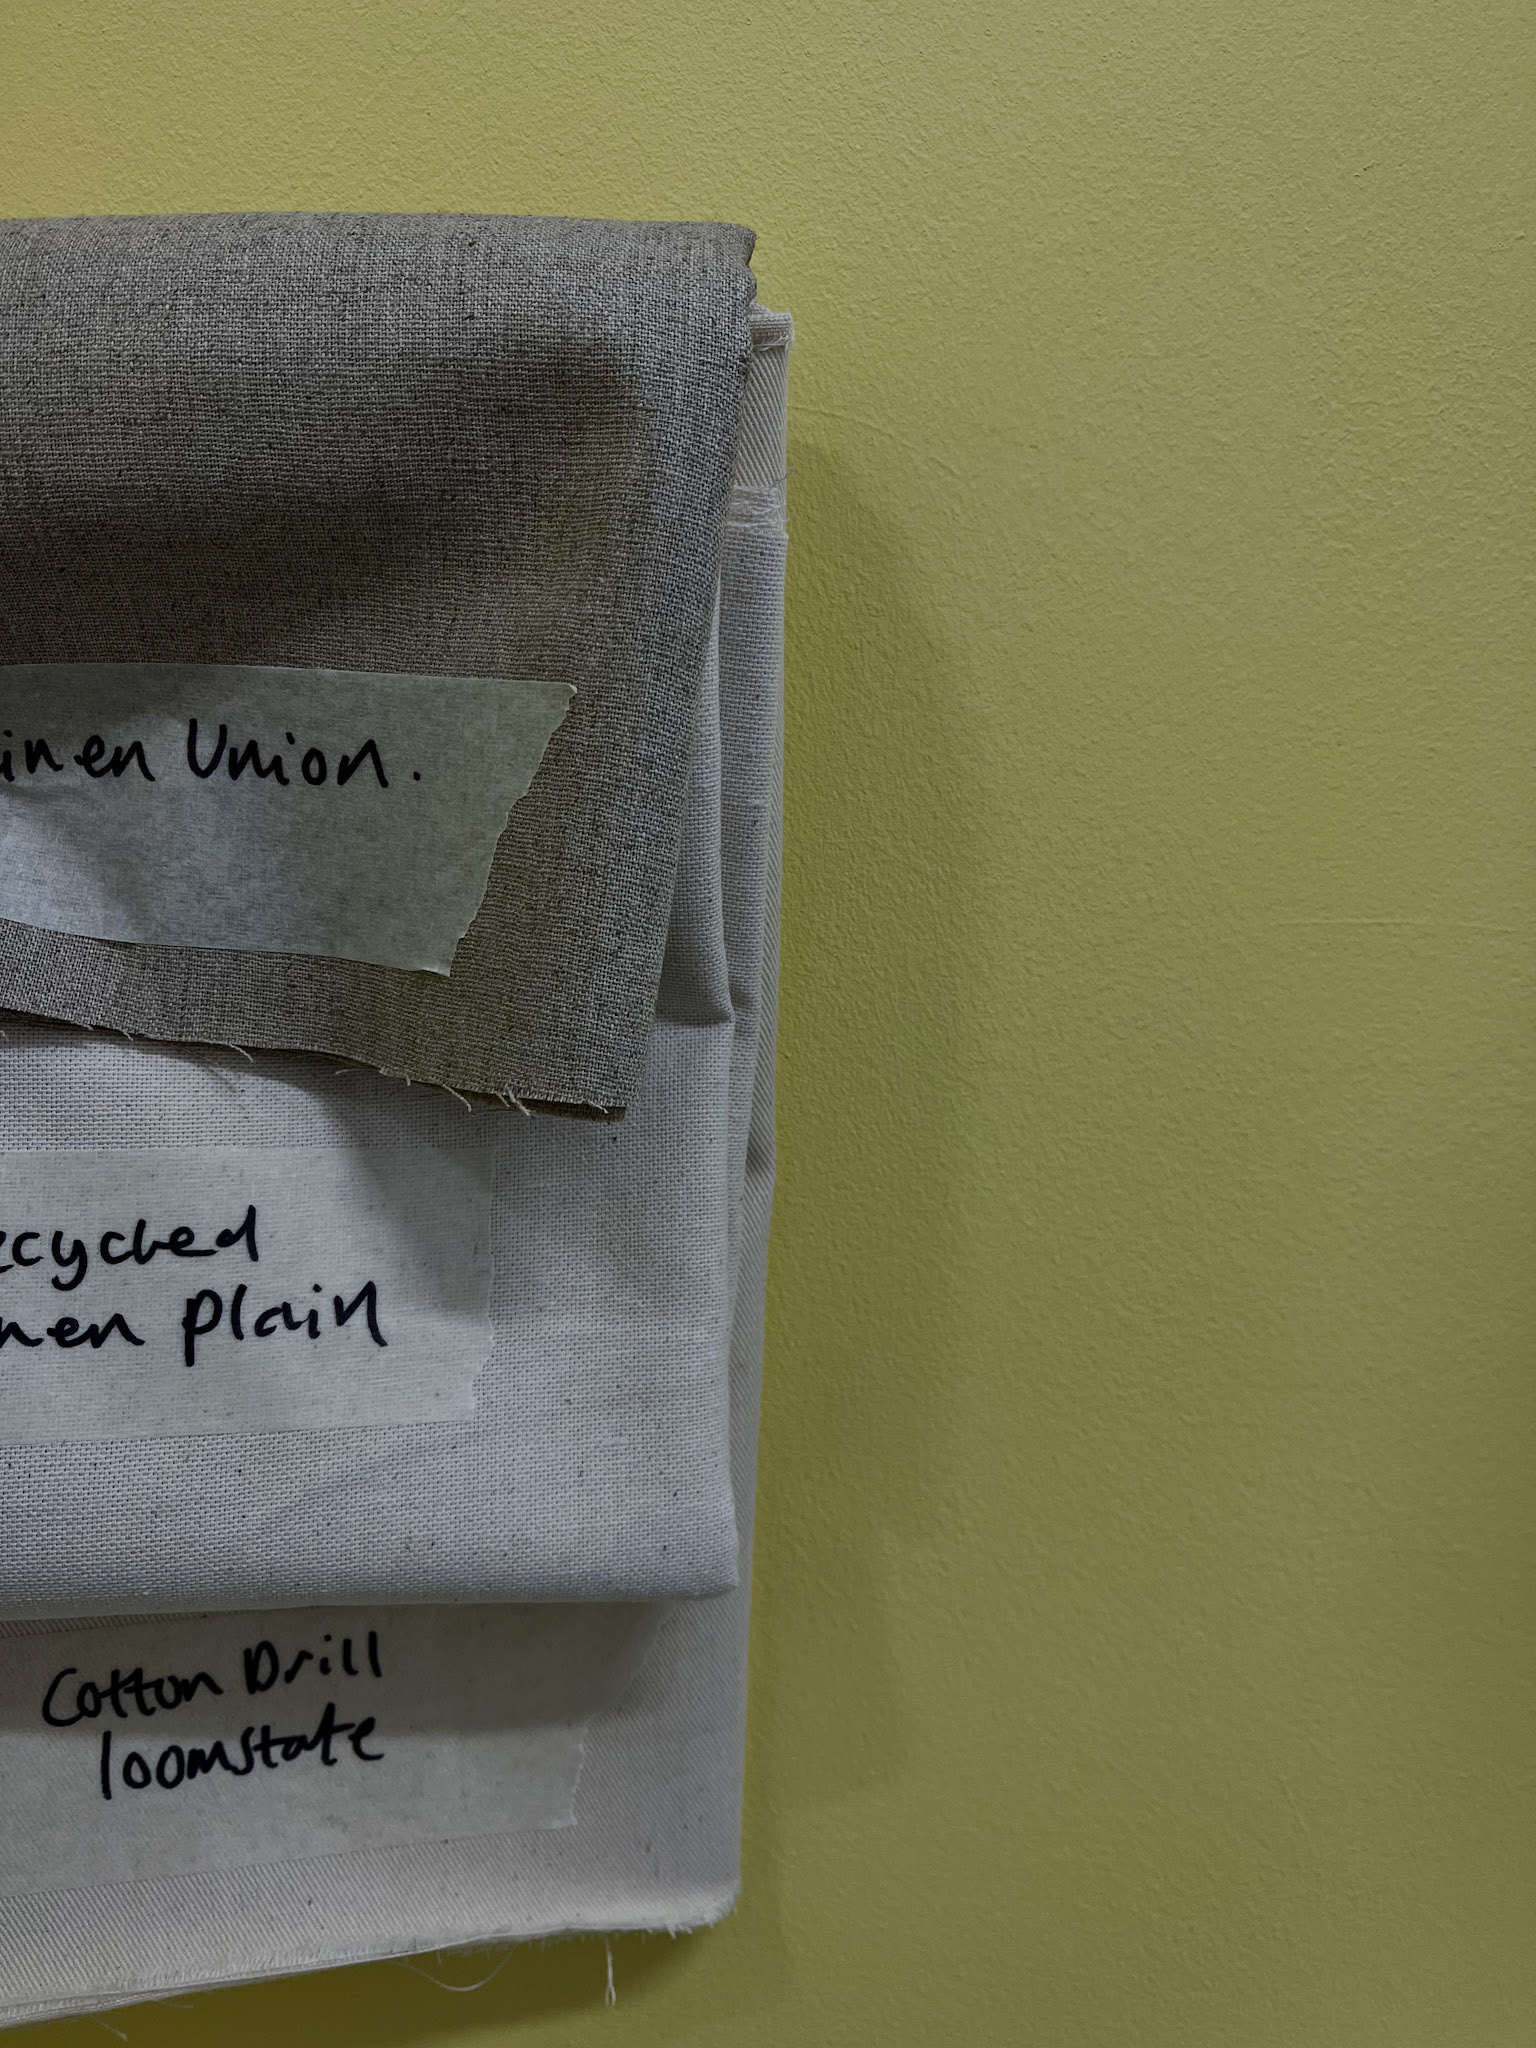 inen Union.
ecycled
nen plain
Cotton Drill
loomstate